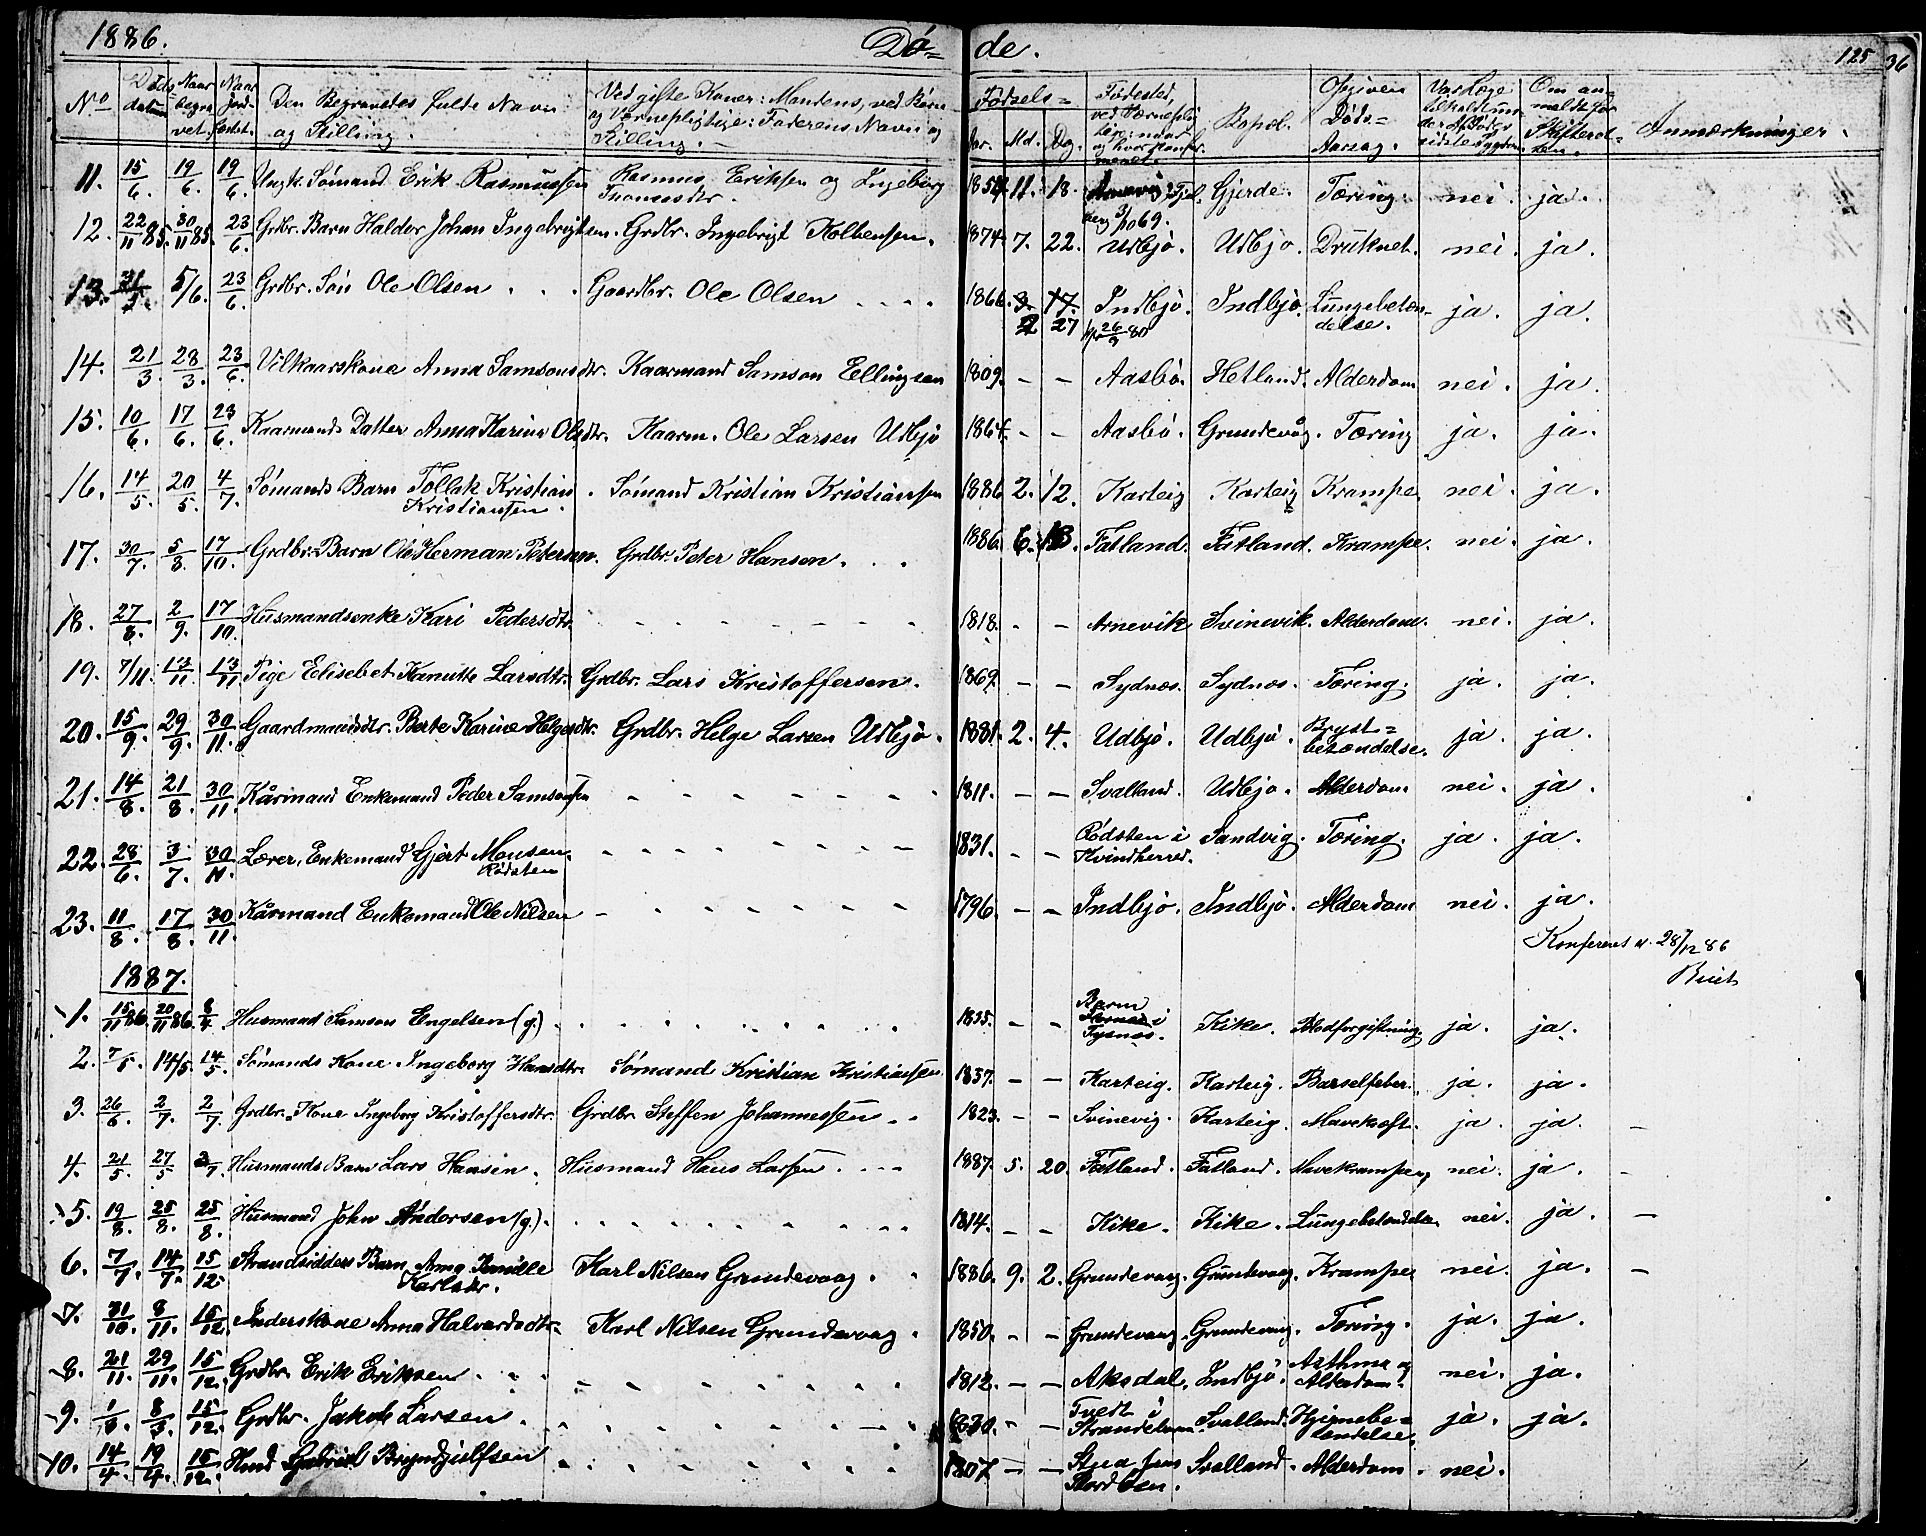 1886. Dø= de. 125 36
No Døds datum Naar begra vet. Naar Jord- fæstet. Den Begravetes fulde Navn og Stilling. Ved gifte Koner: Mandens, ved Børn og Værnepligtige: Faderens Navn og Stilling. Fødsels= Aar. Md. Dg. Fødested, Bopæl. Opgiven Døds= Aarsag. Var Læge tilkaldt Om an- meldt for Skifteret- ten. Anmærkninger.
11. 15/6. 19/6. 19/6. Ungk. Sømand Erik Rasmussen Rasmus Eriksen og Ingeborg Thomasdtr. 11. 18. Gjerde. Tæring. nei. ja.
12. 22/11 85. 30/11 85. 23/6. Grdbr. Barn Haldor Johan Ingebrigtsen. Grdbr. Ingebrigt Kolbensen. 1874. 7. 22. Udbjo. Udbjo. Druknet. nei. ja.
13. 31/5. 5/6. 23/6. Grdbr. Søn Ole Olsen . . . Gaardbr. Ole Olsen . . . . 1866. 3. 17. Indbjø. Indbjø. Lungebetæn-
2 27 26/9 80 delse. ja. ja.
14. 21/3. 28/3. 23/6. Vilkaarskone Anna Samsonsdtr. Kaarmand Samson Ellingsen 1809. – – Aasbø. Hetland. Alderdom nei. ja.
15. 10/6. 17/6. 23/6. Kaarmands Datter Anna Karine Olsdtr. Kaarm. Ole Larsen Udbjo 1864. – – Aasbø. Grundevåg. Tæring ja. ja.
16. 14/5. 20/5. 4/7. Sømands Barn Tollak Kristian Kristiansen. Sømand Kristian Kristiansen 1886 2. 12. Karteig Karteig Krampe nei. ja.
17. 30/7. 5/8. 17/10. Grdbr. Barn Ole Herman Petersen. Grdbr. Peter Hansen. . . 1886. 6. 13. Fatland. Fatland. Krampe. nei. ja.
18. 27/8. 2/9. 17/10. Husmandsenke Kari Pedersdtr. 1818. – – Arnevik Svinevik. Alderdom. nei. ja.
19. 7/11. 13/11. 13/11. Pige Elisebet Kanutte Larsdtr. Grdbr. Lars Kristoffersen. 1869. – – Sydnæs. Sydnes. Tæring. ja. ja.
20. 15/9. 29/9. 30/11. Gaardmandsdtr. Berte Karine Helgesdtr. Grdbr. Helge Larsen Udbjo. 1881. 2. 4. Udbjo. Udbjo. Bryst= betændelse. ja. ja.
21. 14/8. 21/8. 30/11. Kårmand Enkemand Peder Samsonsen 1811. – – Svalland. Udbjo. Alderdom. nei. ja.
22. 28/6. 3/7. 30/11. Lærer, Enkemand Gjert Monsen Rødsten 1831. – – Rødsten i Kvindherred. Sandvig. Tæring. ja. ja.
23. 11/8. 17/8. 30/11. Kårmand Enkemand Ole Nilsen 1796. – – Indbjø. Indbjø. Alderdom nei. ja.
Konfereret d. 28/12 86
1887.
1. 15/11 86. 20/11 86. 8/4. Husmand Samson Engelsen (g.) 1835. – – Tysnæs. Kike. Blodforgiftning. ja. ja.
2. 7/5. 14/5. 14/5. Sømands Kone Ingeborg Hansdtr. Sømand Kristian Kristiansen 1837. – – Karteig. Karteig. Barselfeber. ja. ja.
3. 26/6. 2/7. 2/7. Grdbr. Kone Ingeborg Kristoffersdtr. Grdbr. Steffen Johannessen . . 1823. – – Svinevig. Karteig. Mavekræft. ja. ja. –
4. 21/5. 27/5. 3/7. Husmands Barn Lars Hansen. Husmand Hans Larsen. 1887. 5. 20. Fatland. Fatland. Mavekrampe nei. ja. –
5. 19/8. 25/8. 25/8. Husmand John Andersen (g.). 1814. – – Kike. Kike. Lungebetændelse. nei. ja. –
6. 7/7. 14/7. 15/12. Strandsidders Barn Anna Karlsdtr. Karl Nilsen Grundevaag. 1886. 9. 2. Grundevaag. Grundevaag. Krampe nei. ja. –
7. 31/10. 8/11. 15/12. Inderskone Anna Halvardsdtr. Karl Nilsen Grundevaag. 1850. – – Grundevaag. Grundevaag. Tæring. ja. ja.
8. 21/11. 29/11. 15/12. Grdbr. Erik Eriksen. 1812. – – Aksdal. Indbjø. Asthma og Alderdom. nei. ja.
9. 8/3. 15/12. Grdbr. Jakob Larsen. 1830. – – Tvedt i Strandebarm. Svalland. Hjernebe= tændelse. ja. ja.
10. 14/4. 19/4. 15/12. Hmd Gabriel Brynjulfsen 1807. – – Svalland. Alderdom. nei.